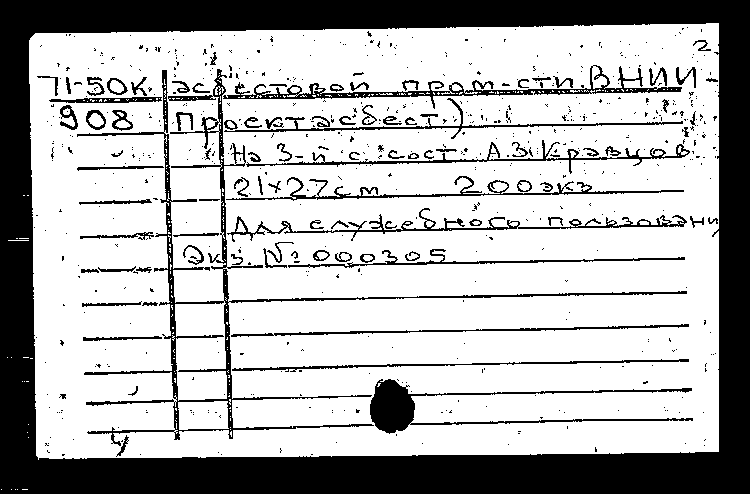 2
71-50к. асбестовой пром-сти. ВНИИ-
908 Проектасбест.)
На 3-й с. сост. А.З. Кравцов.
21×27см 200экз
Для служебного пользовани
Экз. № 000305